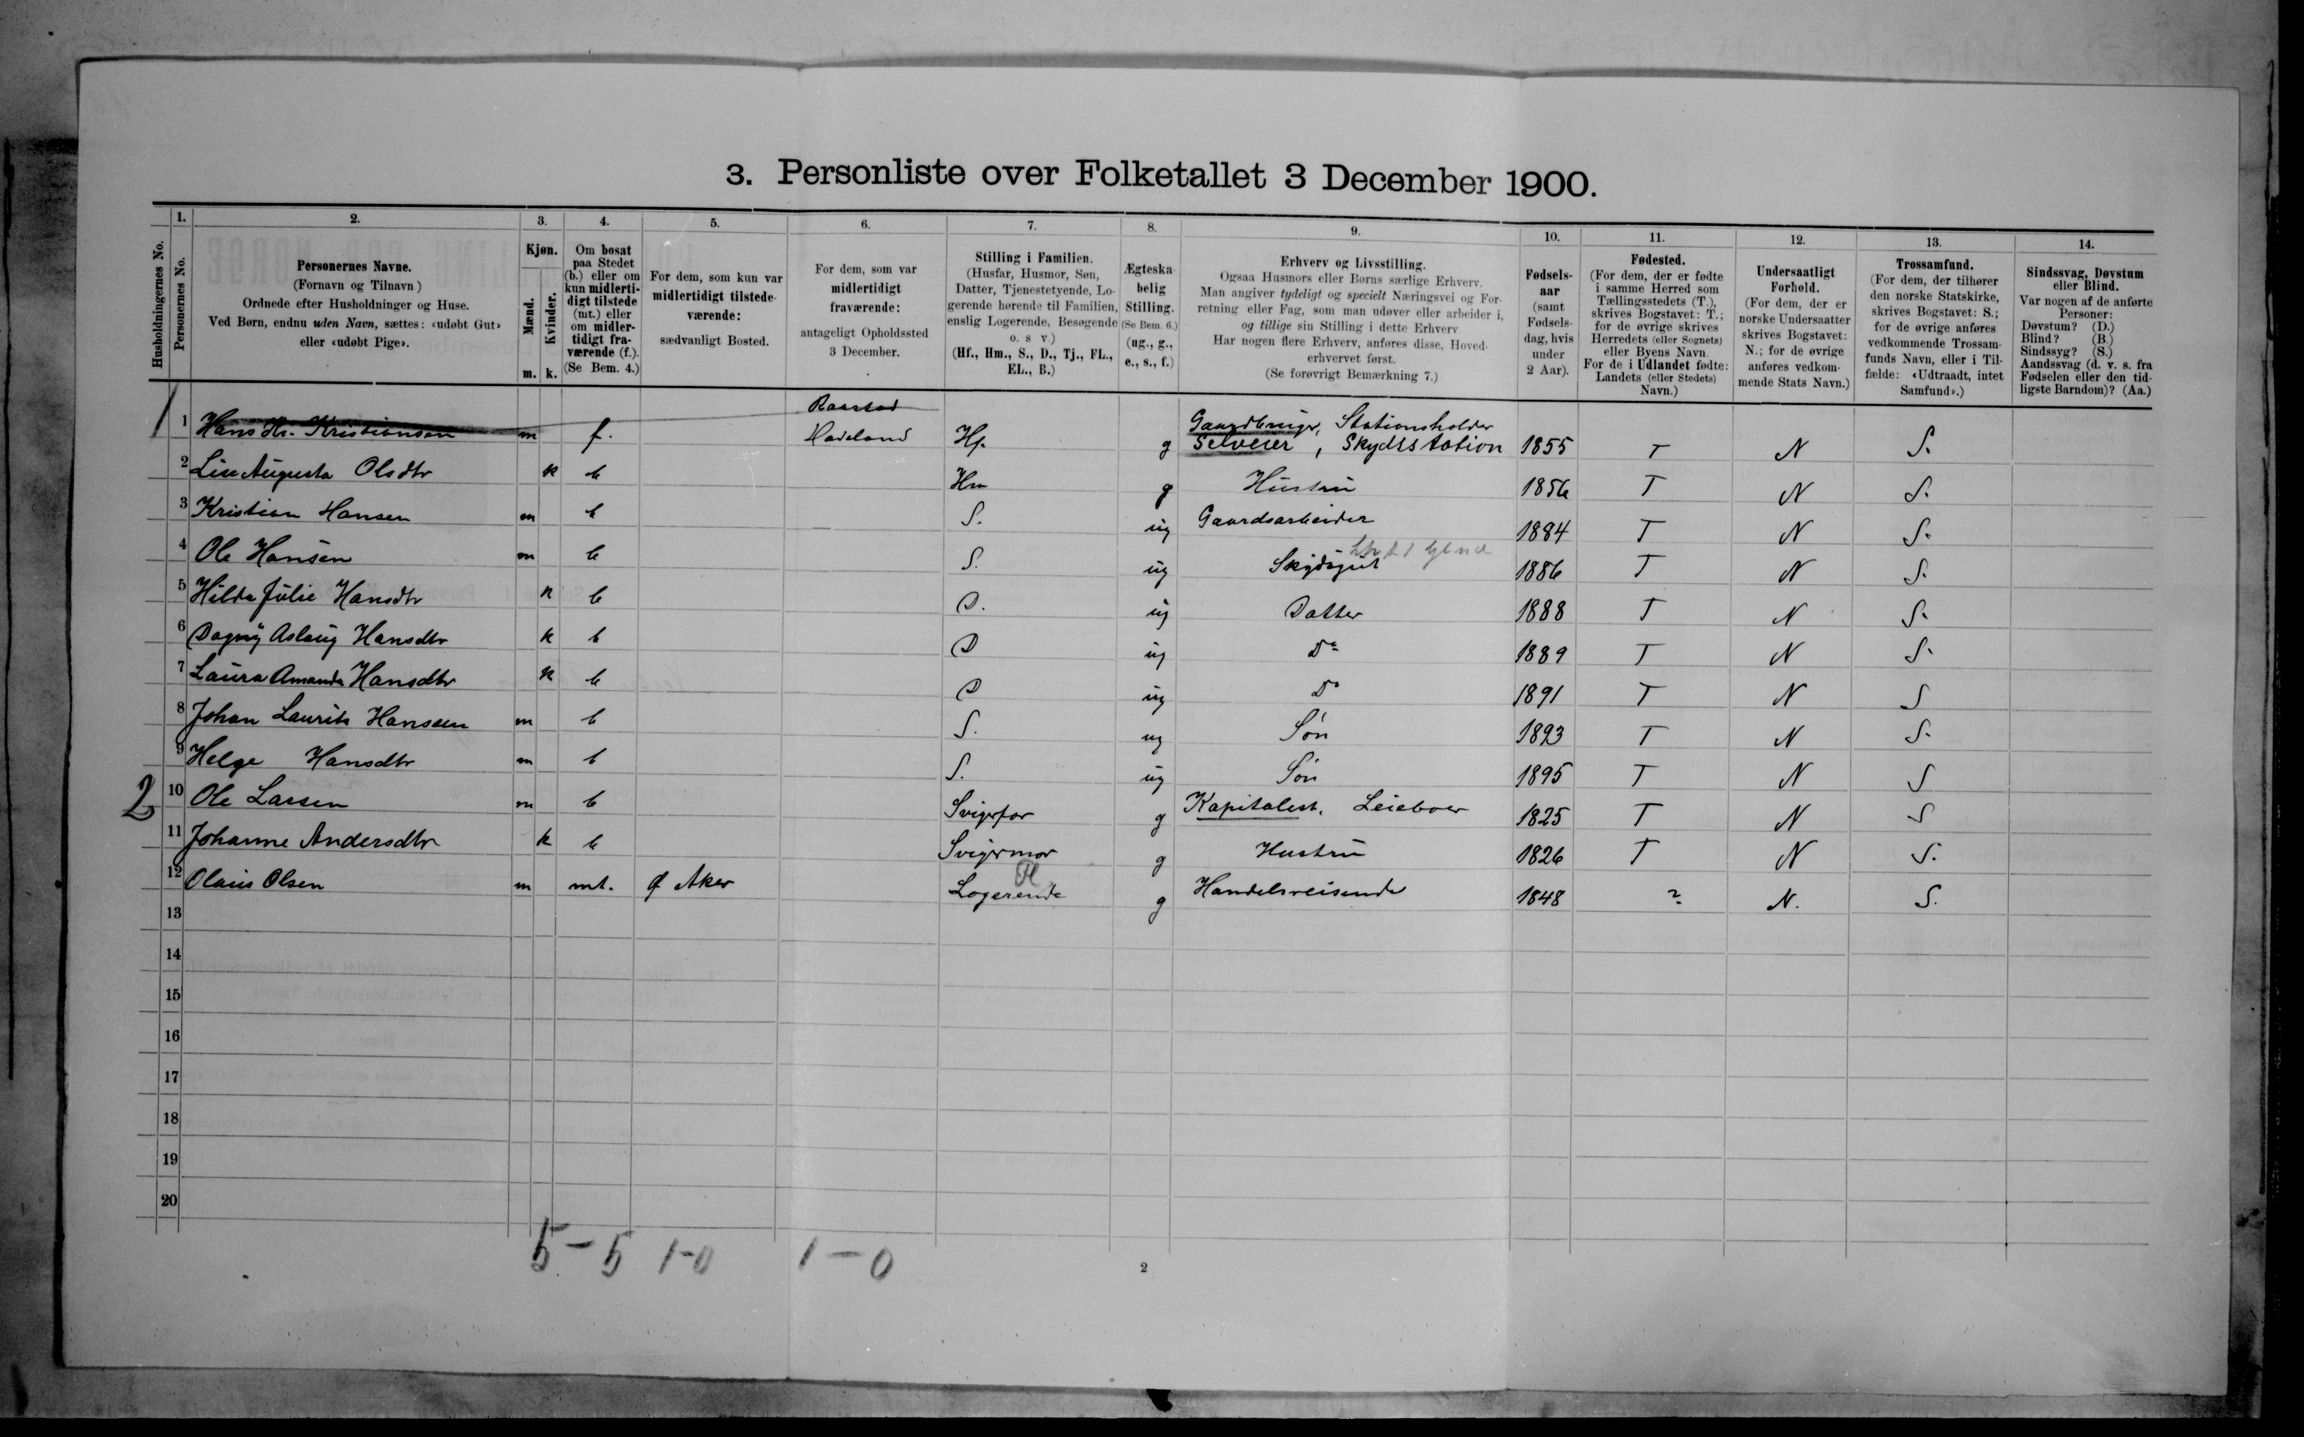 3. Personliste over Folketallet 3 December 1900.
Husholdningernes No.
1. Personernes No.
2. Personernes Navne.
(Fornavn og Tilnavn)
Ordnede efter Husholdninger og Huse.
Ved Børn, endnu uden Navn, sættes: «udøbt Gut»
eller «udøbt Pige».
3. Kjøn.
Mænd. m.
Kvinder. k.
4. Om bosat
paa Stedet
(b.) eller om
kun midlerti-
digt tilstede
(mt.) eller
om midler-
tidigt fra-
værende (f.).
(Se Bem. 4.)
5. For dem, som kun var
midlertidigt tilstede-
værende:
sædvanligt Bosted.
6. For dem, som var
midlertidigt
fraværende:
antageligt Opholdssted
3 December.
7. Stilling i Familien.
(Husfar, Husmor, Søn,
Datter, Tjenestetyende, Lo-
gerende hørende til Familien,
enslig Logerende, Besøgende
o. s v.)
(Hf., Hm., S., D., Tj., FL.,
EL., B.)
8. Ægteska
belig
Stilling.
(Se Bem. 6.)
(ug., g.,
e., s., f.)
9. Erhverv og Livsstilling.
Ogsaa Husmors eller Børns særlige Erhverv.
Man angiver tydeligt og specielt Næringsvei og For-
retning eller Fag, som man udøver eller arbeider i,
og tillige sin Stilling i dette Erhverv
Har nogen flere Erhverv, anføres disse, Hoved
erhvervet først.
(Se forøvrigt Bemærkning 7.)
10. Fødsels-
aar
(samt
Fødsels-
dag, hvis
under
2 Aar).
11. Fødested.
(For dem, der er fødte
i samme Herred som
Tællingsstedets (T.),
skrives Bogstavet: T.;
for de øvrige skrives
Herredets (eller Sognets)
eller Byens Navn.
For de i Udlandet fødte:
Landets (eller Stedets)
Navn.)
12. Undersaatligt
Forhold.
(For dem, der er
norske Undersaatter
skrives Bogstavet:
N.; for de øvrige
anføres vedkom-
mende Stats Navn.)
13. Trossamfund.
(For dem, der tilhører
den norske Statskirke,
skrives Bogstavet: S.;
for de øvrige anføres
vedkommende Trossam-
funds Navn, eller i Til-
fælde: «Udtraadt, intet
Samfund».)
14. Sindssvag, Døvstum
eller Blind.
Var nogen af de anførte
Personer:
Døvstum? (D.)
Blind? (B.)
Sindssyg? (S.)
Aandssvag (d. v. s. fra
Fødselen eller den tid-
ligste Barndom)? (Aa.)
Gaardbruger, Stationsholder
1 1 Hans Kristiansen m f. Hadeland Hf. g Selveier, Skydsstation 1855 T N S.
2 Lise Augusta Olsdtr k b Hm g Hustru 1856 T N S.
3 Kristian Hansen m b S. ug Gaardsarbeider 1884 T N S.
4 Ole Hansen m b S. ug Skydsgut 1886 T N S.
5 Hilda Julie Hansdtr k b D. ug Datter 1888 T N S.
6 Dagny Aslaug Hansdtr k b D ug Do 1889 T N S.
7 Laura Amanda Hansdtr k b D ug Do 1891 T N S
8 Johan Laurits Hansen m b S. ug Søn 1893 T N S.
9 Helge Hansdtr m b S. ug Søn 1895 T N S
2 10 Ole Larsen m b Svigerfar g Kapitalist. Leieboer 1825 T N S
11 Johanne Andersdtr k b Svigermor g Hustru 1826 T N S.
12 Olaus Olsen m mt. Ø Aker Fl Logerende g Handelsreisende 1848 ? N. S.
13
14
15
16
17
18
19
20
5 – 5 1-0 1 – 0
2